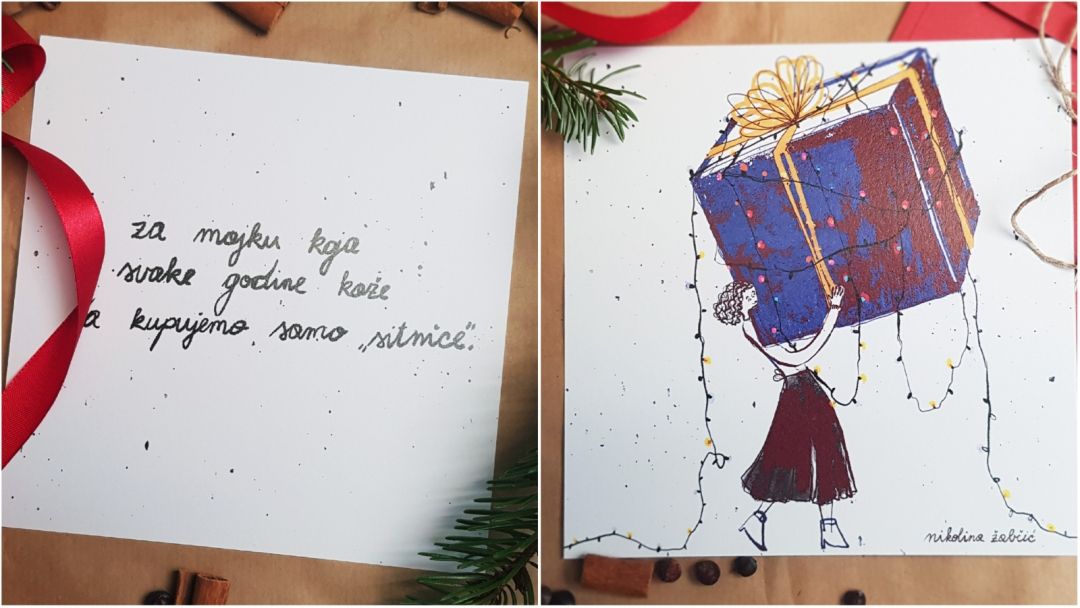 za majku koja
svake godine kaže
a kupujemo samo „sitnice”.
nikolina žabčić